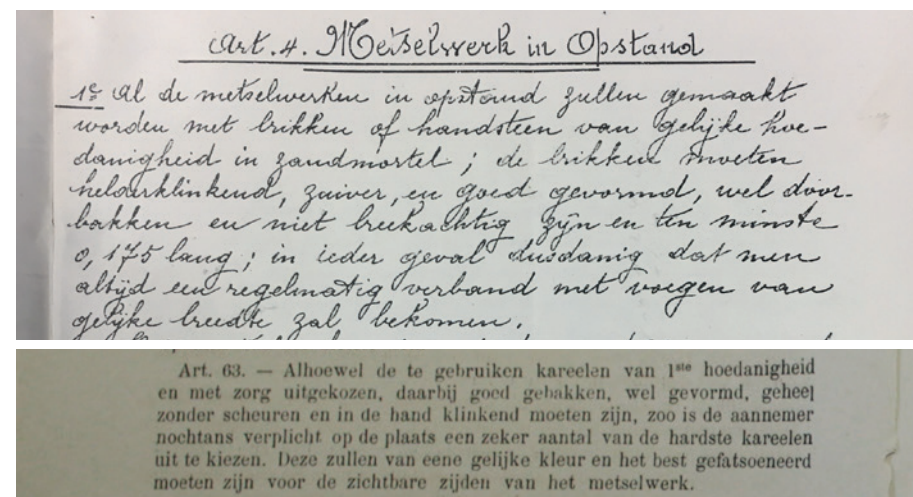 Art. 4. Metselwerk in Opstand
1e Al de metselwerken in opstand zullen gemaakt
worden met brikken of handsteen van gelijke hoe-
danigheid in zandmortel; de brikken moeten
helderklinkend, zuiver, en goed gevormd, wel door-
bakken en niet breekachtig zijn en ten minste
0,175 lang; in ieder geval dusdanig dat men
altijd een regelmatig verband met voegen van
gelijke breedte zal bekomen.
Art. 63. — Alhoewel de te gebruiken kareelen van 1ste hoedanigheid
en met zorg uitgekozen, daarbij goed gebakken, wel gevormd, geheel
zonder scheuren en in de hand klinkend moeten zijn, zoo is de aannemer
nochtans verplicht op de plaats een zeker aantal van de hardste kareelen
uit te kiezen. Deze zullen van eene gelijke kleur en het best gefatsoeneerd
moeten zijn voor de zichtbare zijden van het metselwerk.